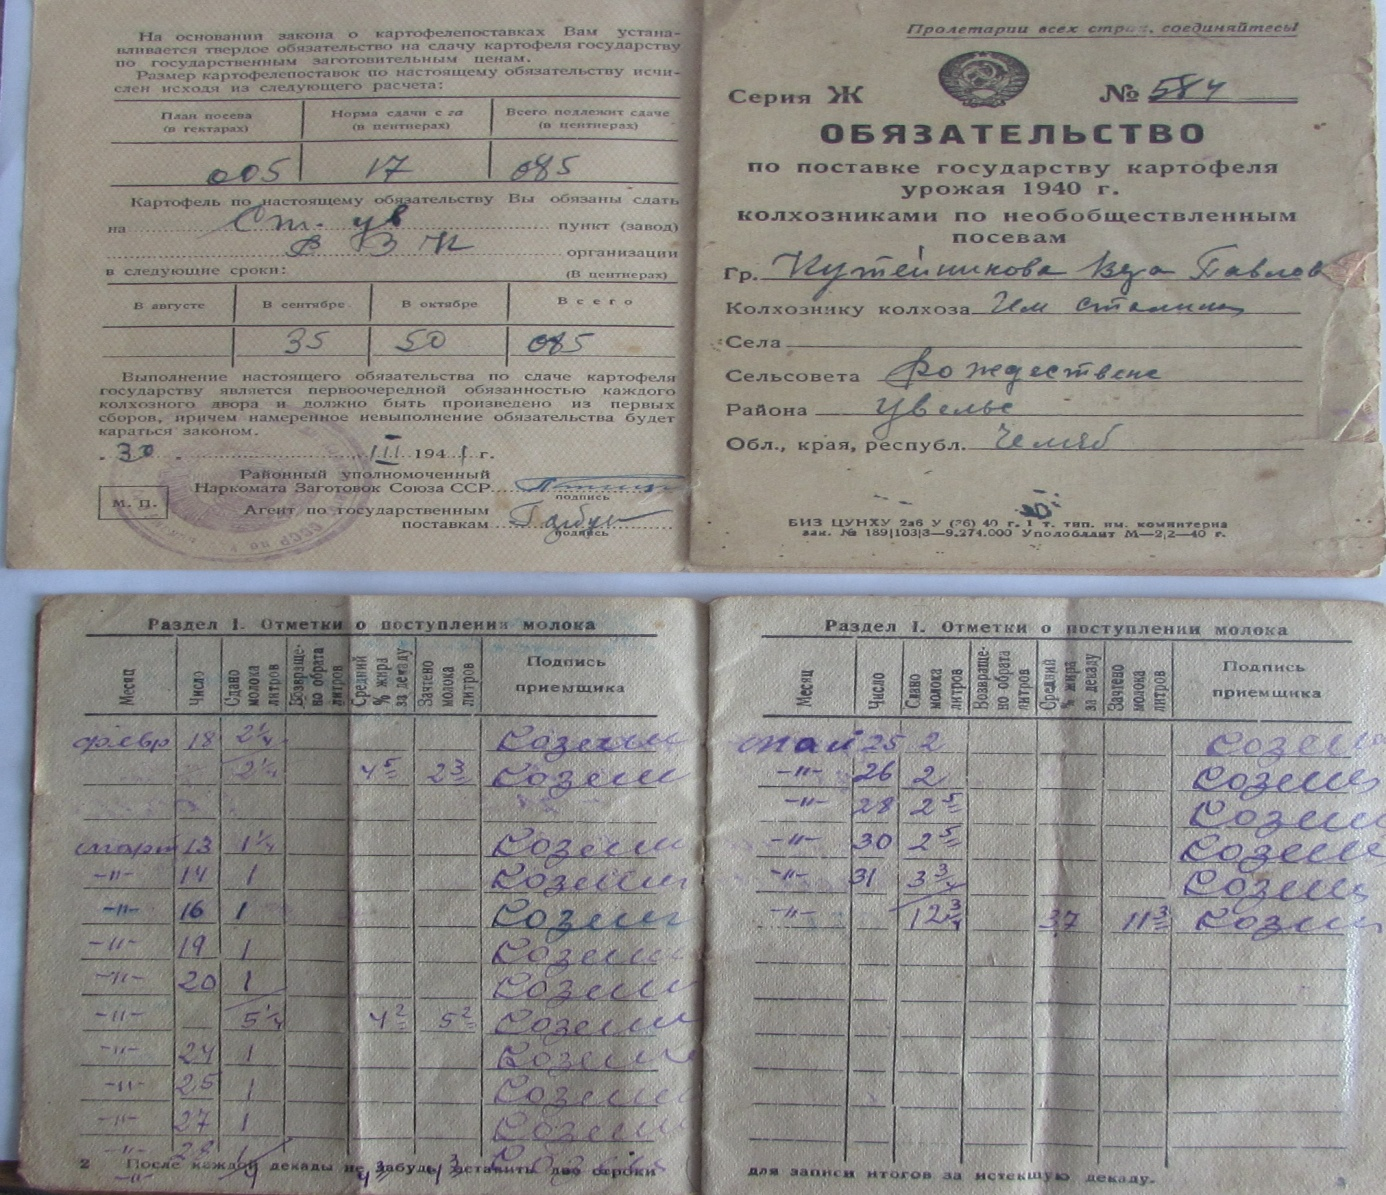 На основании закона о картофелепоставках Вам устана-
вливается твердое обязательство на сдачу картофеля государству
по государственным заготовительным ценам.
Размер картофелепоставок по настоящему обязательству исчи-
слен исходя из следующего расчета:
План посева (в гектарах) Норма сдачи с га (в центнерах) Всего подлежит сдаче (в центнерах)
005 17 085
Картофель по настоящему обязательству Вы обязаны сдать
на Ст. ув пункт (завод)
организации
в следующие сроки: (В центнерах)
В августе В сентябре В октябре Всего
35 50 085
Выполнение настоящего обязательства по сдаче картофеля
государству является первоочередной обязанностью каждого
колхозного двора и должно быть произведено из первых
сборов, причем намеренное невыполнение обязательства будет
караться законом.
30 III 1941 г.
Районный уполномоченный
Наркомата Заготовок Союза ССР
подпись
М. П.
Агент по государственным
поставкам
подпись
Пролетарии всех стран, соединяйтесь!
Серия Ж № 584
ОБЯЗАТЕЛЬСТВО
по поставке государству картофеля
урожая 1940 г.
колхозниками по необобществленным
посевам
Гр. Кутейникова Вера Павлов
Колхознику колхоза Им Сталина
Села
Сельсовета Рождествене
Района Увельс
Обл., края, республ. Челяб
БИЗ ЦУНХУ 2аб У (26) 40 г. 1 т. тип. им. коминтерна
зак. № 189|103|3—9.274.000 Уполобллит М—2,2—40 г.
Раздел I. Отметки о поступлении молока
Месяц Число Сдано молока литров Возвраще-но обрата литров Средний % жира за декаду Зачтено молока литров Подпись приемщика
февр 18 2 1/4 Козем
2 1/4 4 5 2 3 Козем
март 13 1 1/4 Козем
-"- 14 1 Козем
-"- 16 1 Козем
-"- 19 1 Козем
-"- 20 1 Козем
-"- 5 1/4 4 2 5 2 Козем
-"- 24 1 Козем
-"- 25 1 Козем
-"- 27 1 Козем
-"- 28 1 Козем
2 После каждой декады не забудь оставить две строки
Раздел I. Отметки о поступлении молока
Месяц Число Сдано молока литров Возвраще-но обрата литров Средний % жира за декаду Зачтено молока литров Подпись приемщика
май 25 2 Козем
-"- 26 2 Козем
-"- 28 2 5 Козем
-"- 30 2 5 Козем
-"- 31 3 3/4 Козем
-"- 12 3/4 3,7 11 3 Козем
для записи итогов за истекшую декаду.
3